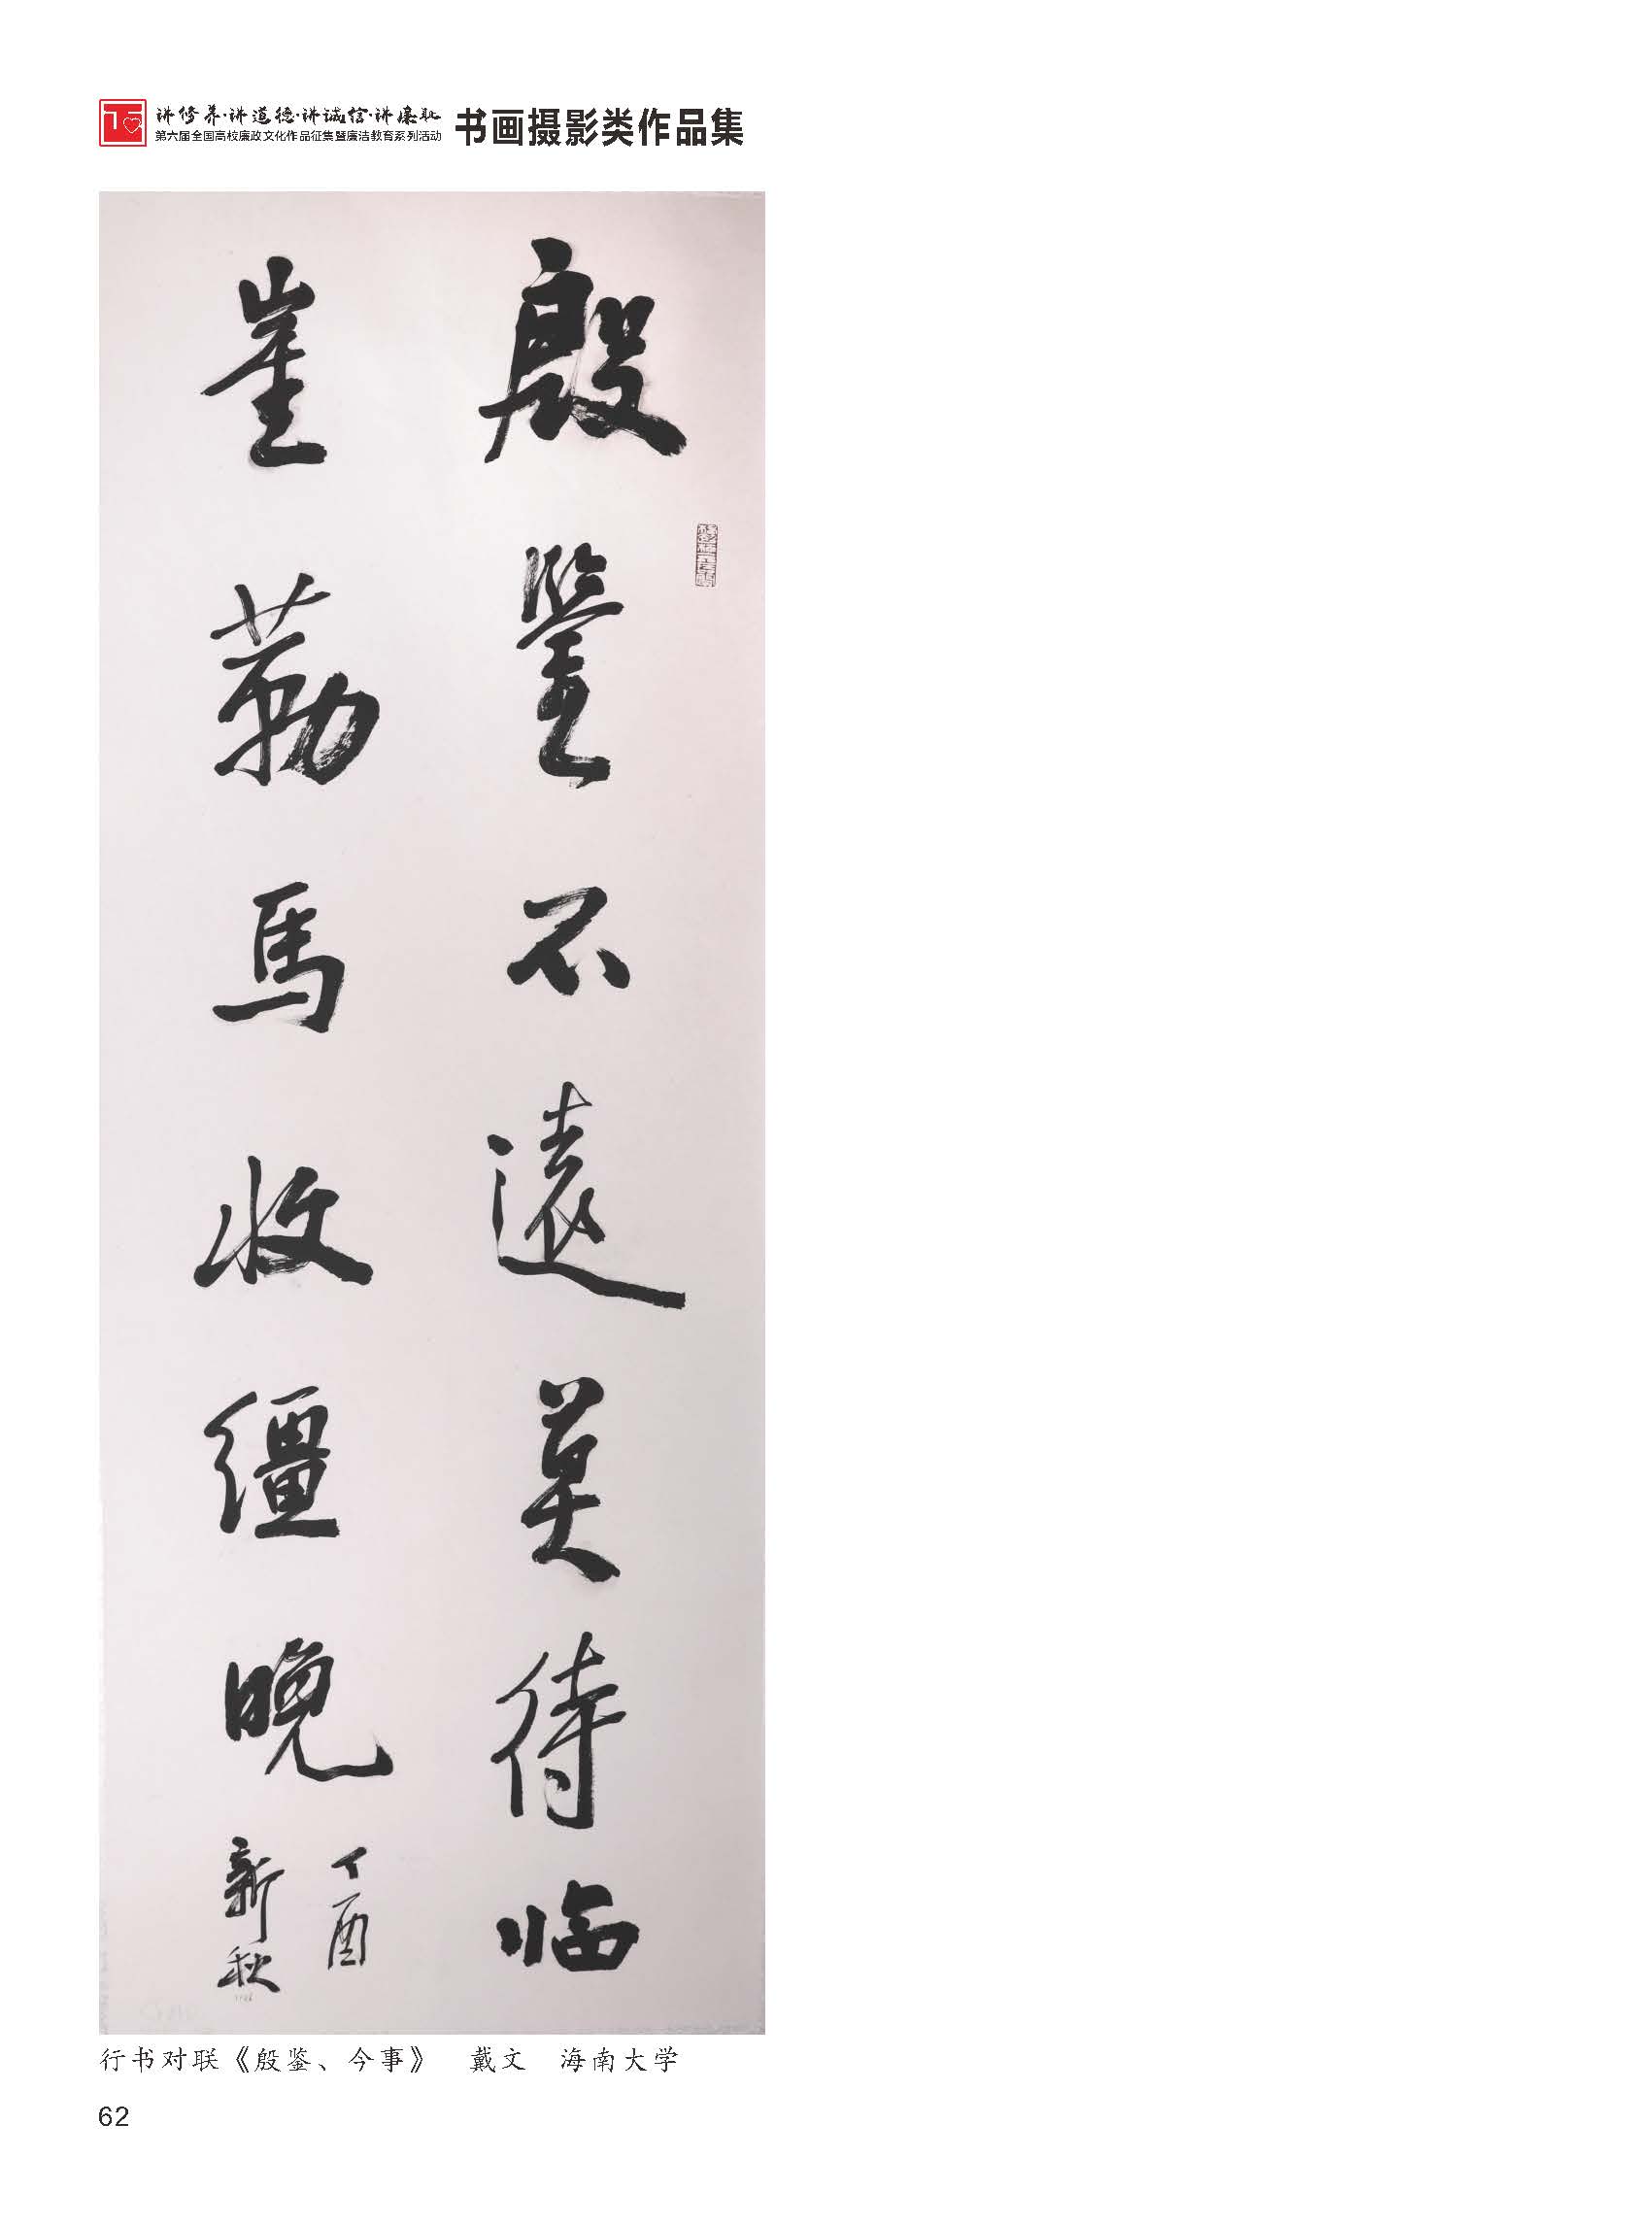 讲修养·讲道德·讲诚信·讲廉耻
第六届全国高校廉政文化作品征集暨廉洁教育系列活动
书画摄影类作品集
殷鉴不遠莫待临
崖勒馬收缰晚
丁酉
新秋
行书对联《殷鉴、今事》　戴文　海南大学
62